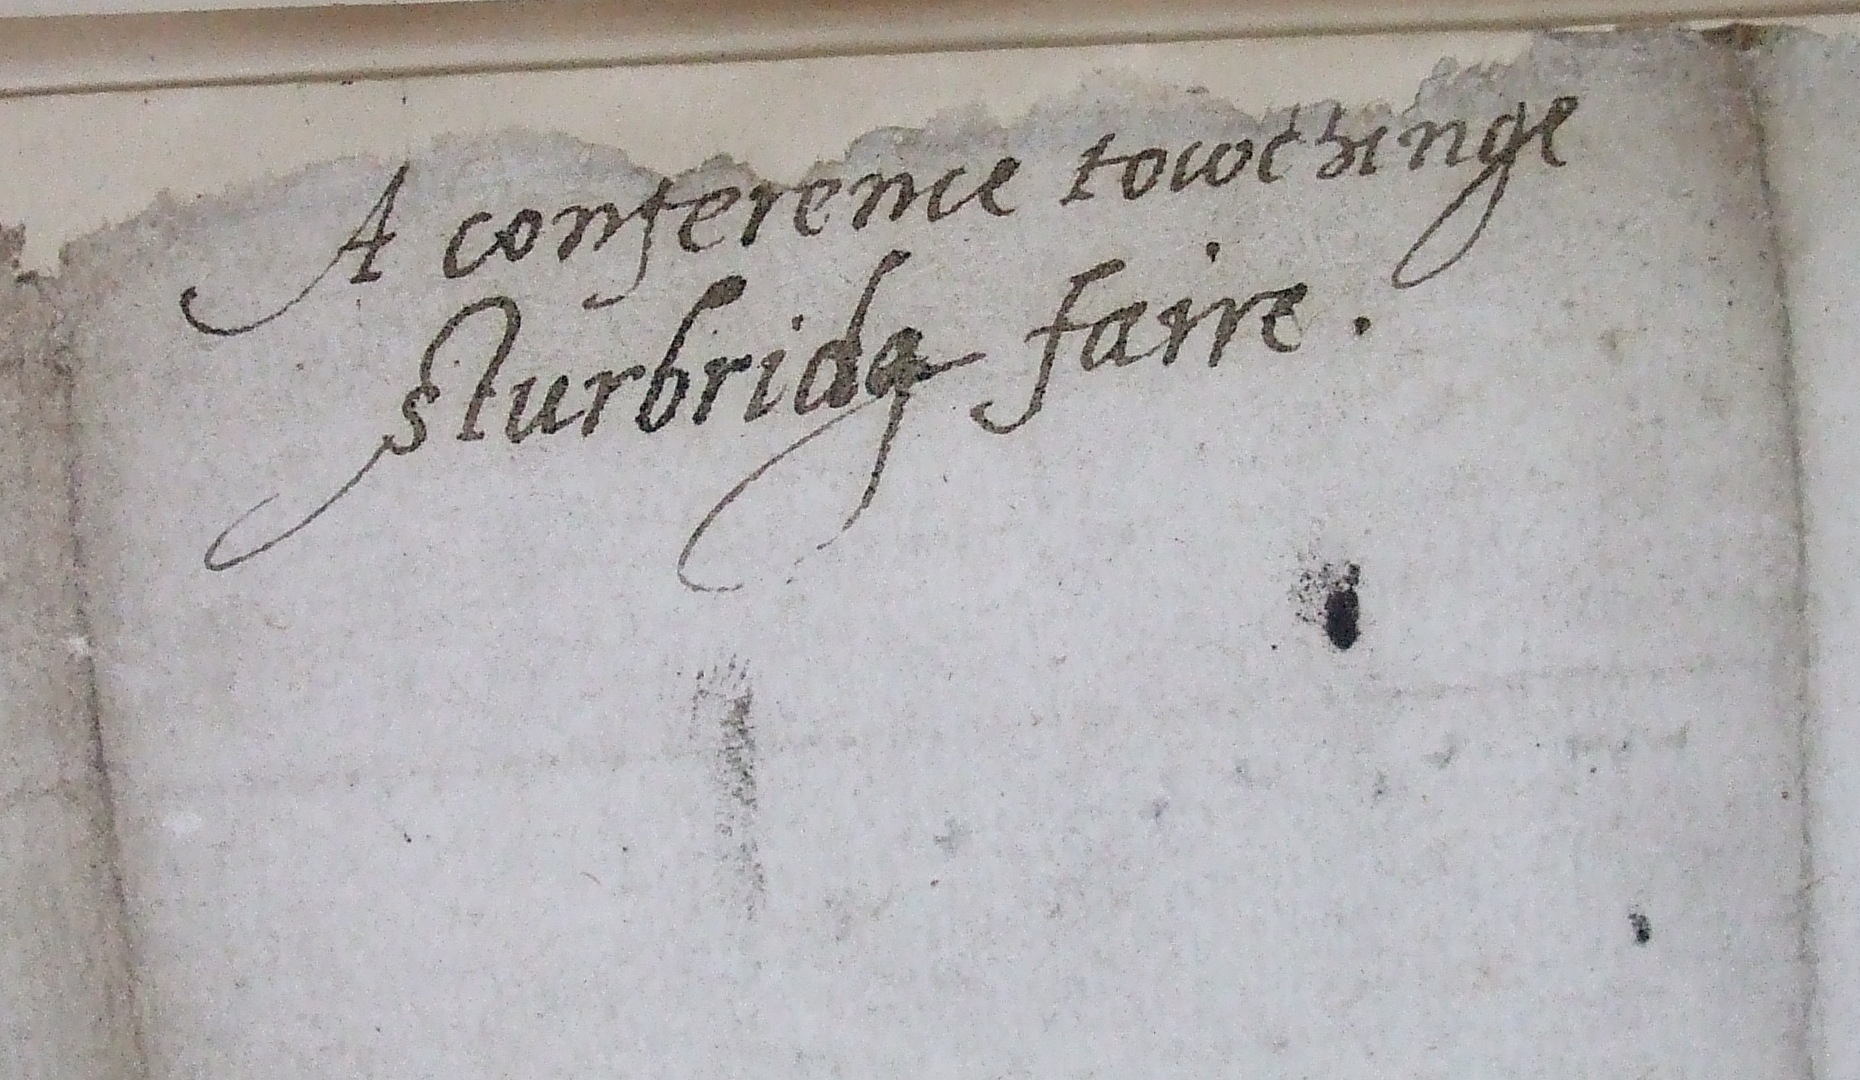 A conference towchinge
sturbridg faire.